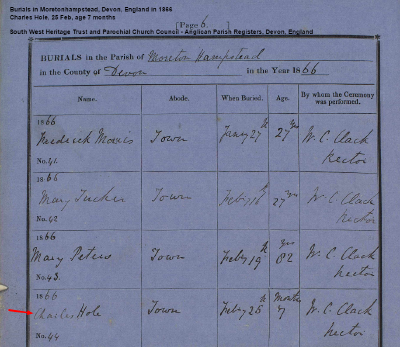 Burials in Moretonhampstead, Devon, England in 1866
Charles Hole, 25 Feb, age 7 months
South West Heritage Trust and Parochial Church Council - Anglican Parish Registers, Devon, England
[Page 6.
BURIALS in the Parish of Moreton Hampstead
in the County of Devon in the Year 1866
Name. Abode. When Buried. Age. By whom the Ceremony was performed.
1866
Frederick Morris Town Jany 27th 27 yrs W. C. Clack Rector
No. 41.
1866
Mary Tucker Town Feby 16th 27 yrs W. C. Clack Rector
No. 42
1866
Mary Peters Town Feby 19th 82 yrs W. C. Clack Rector
No. 43.
1866
Charles Hole Town Feby 25th 7 Months W. C. Clack Rector
No. 44